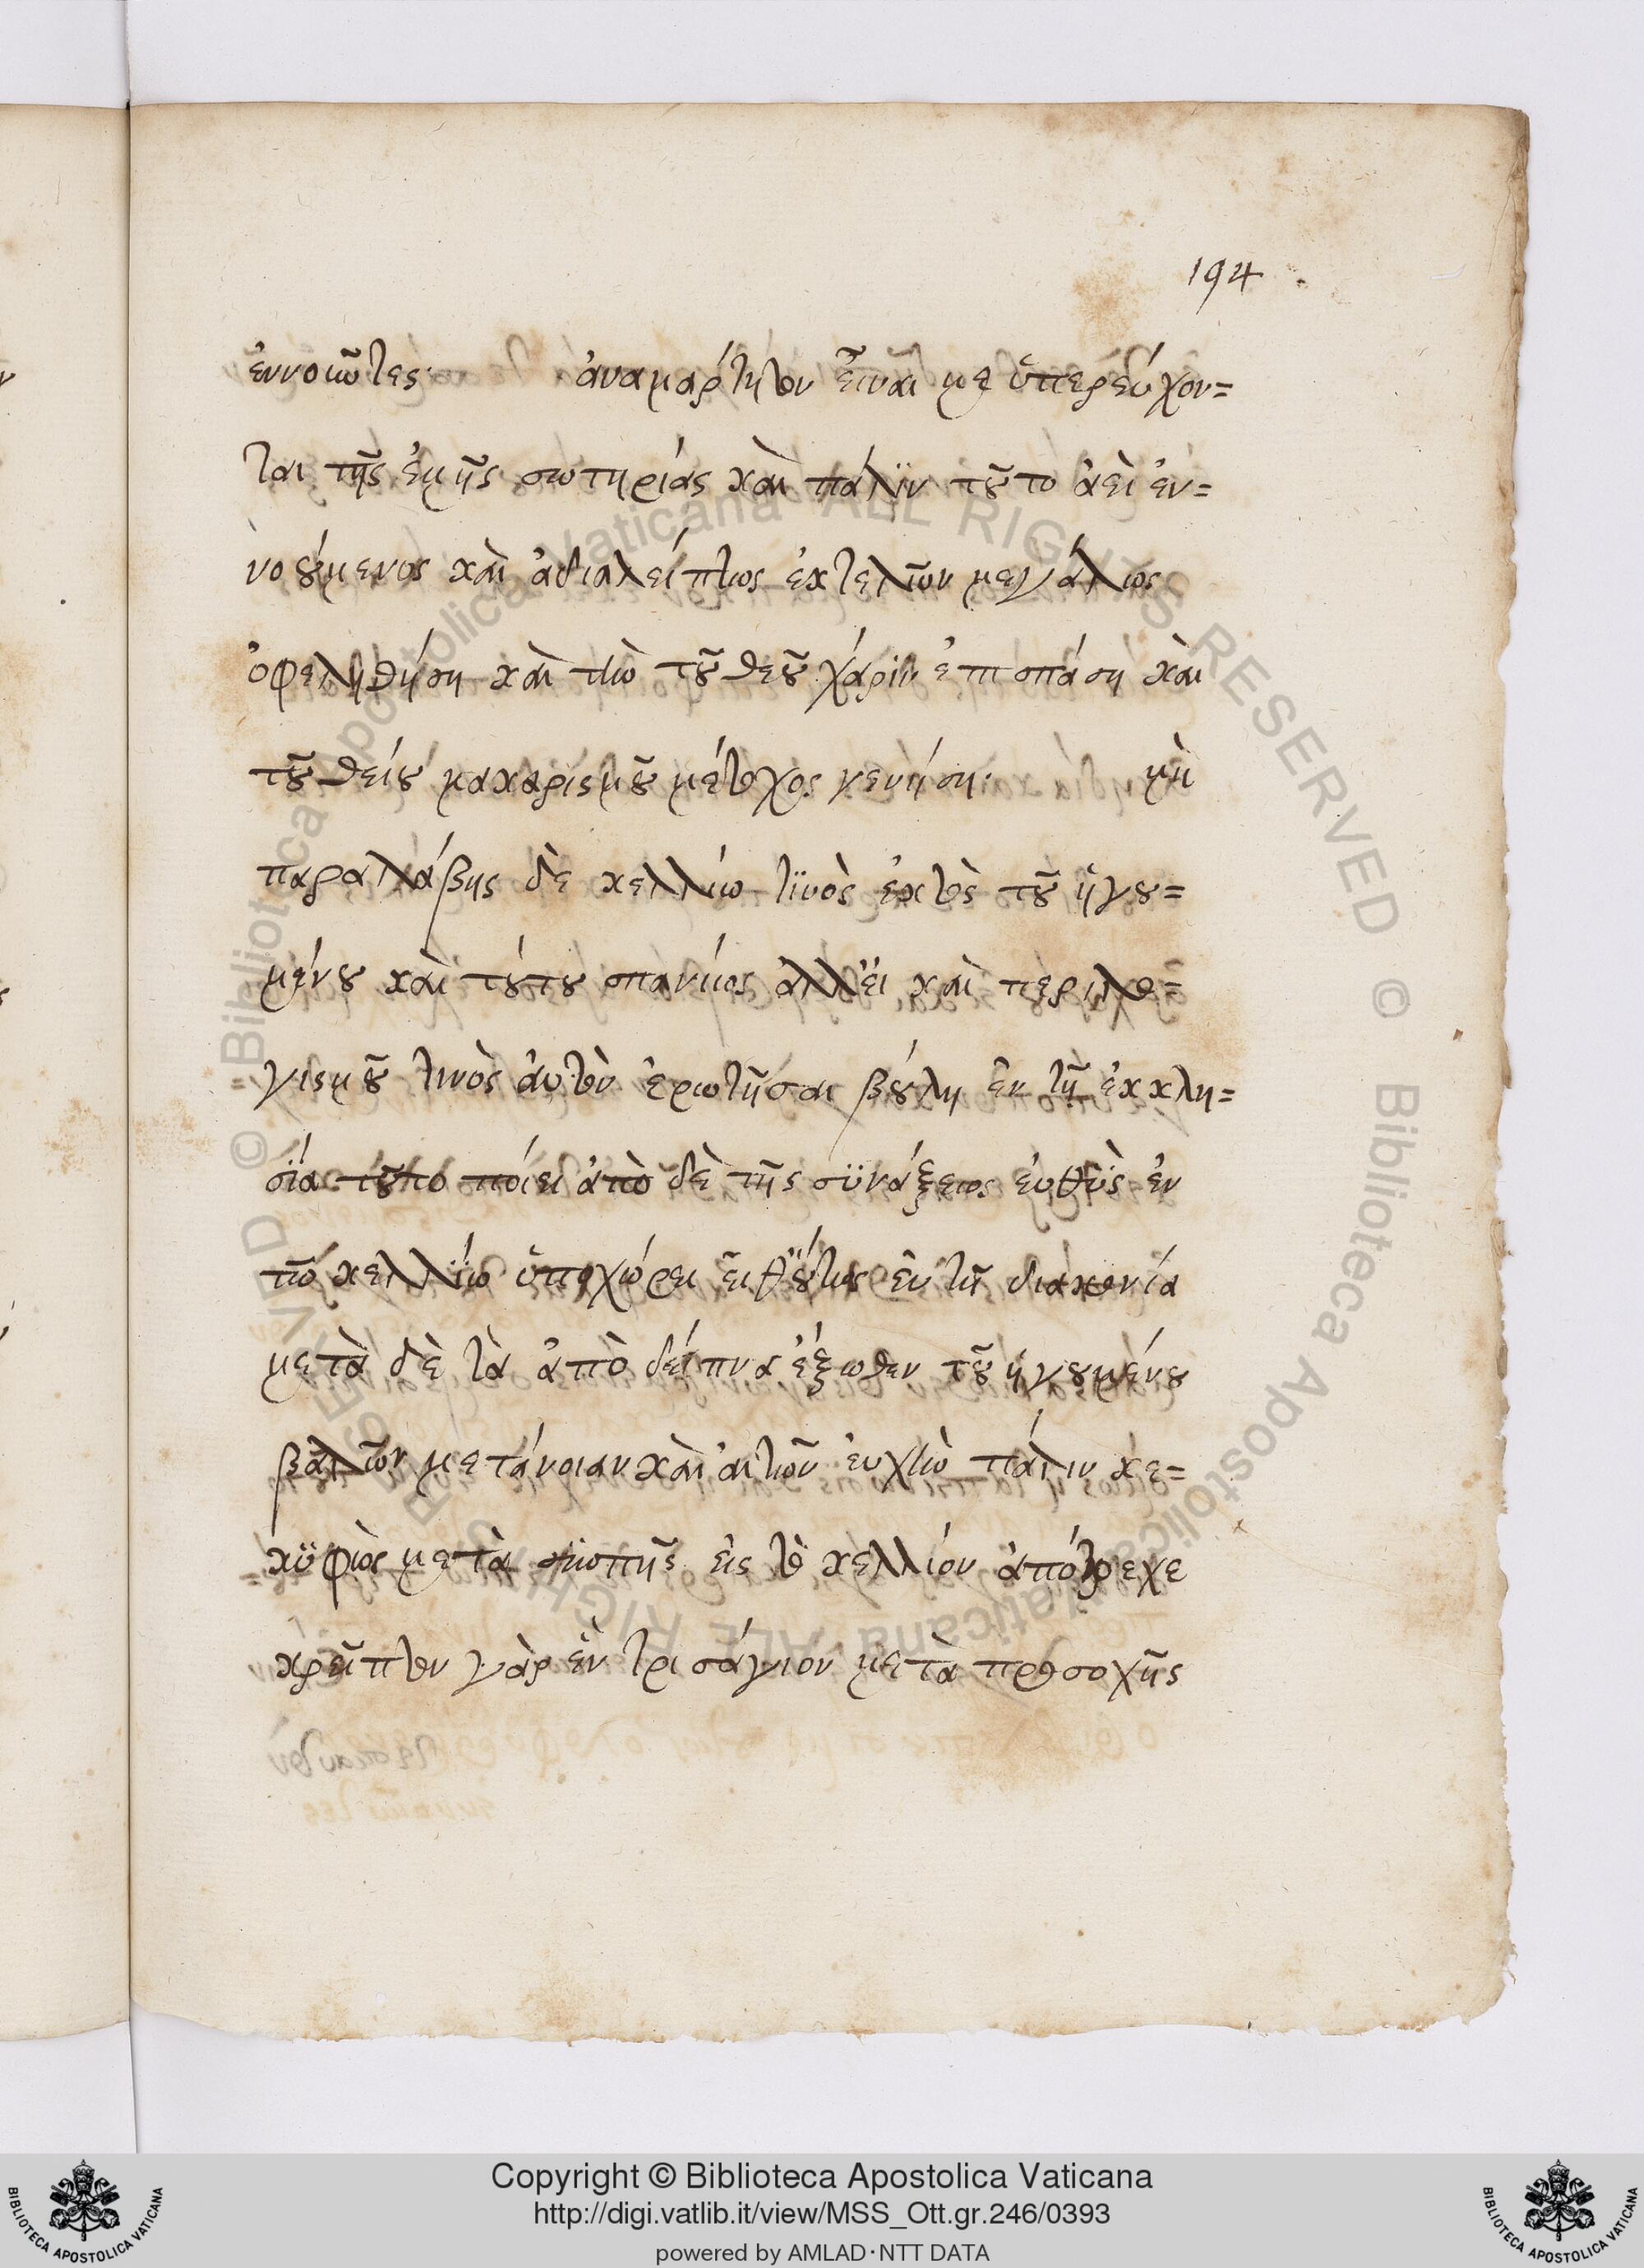 194
ἐννοιῶτες· ἀναμάρτητον εἶναι με ὑπερεύχον=
ται τῆς ἐμῆς σωτηρίας καὶ πάλϊν τοῦτο ἀεὶ ἐν=
νοούμενος καὶ ἀδιαλείπτως ἐκτελῶν μεγάλως
ὀφεληθήση καὶ τὴν τοῦ θεοῦ χάριν ἐπισπάση καὶ
τοῦ θείου μακαρισμοῦ μέτοχος γενήση· μὴ
παραλάβης δὲ κελλίω τϊνὸς ἐκτὸς τοῦ ἡγου=
μένου καὶ τούτου σπανίως ἀλλ' εἰ καὶ περὶ λο=
γισμοῦ τινὸς αὐτὸν ἐρωτῆσαι βούλη ἐν τῆ ἐκκλη=
σία τοῦτο ποίει ἀπὸ δὲ τῆς συνάξεως εὐθὺς ἐν
τῶ κελλίω ὑποχώρει εἶθ' οὕτως ἐν τῆ διακονία
μετὰ δὲ τὰ ἀπὸ δείπνα ἔξωθεν τοῦ ἡγουμένου
βαλῶν μετάνοιαν καὶ αἰτῶν εὐχὴν πάλιν κε=
κϋφὼς μετὰ σιωπῆς εἰς τὸ κελλίον ἀπότρεχε
κρεῖττον γὰρ ἓν τρισάγιον μετὰ προσοχῆς
Copyright © Biblioteca Apostolica Vaticana
http://digi.vatlib.it/view/MSS_Ott.gr.246/0393
powered by AMLAD·NTT DATA